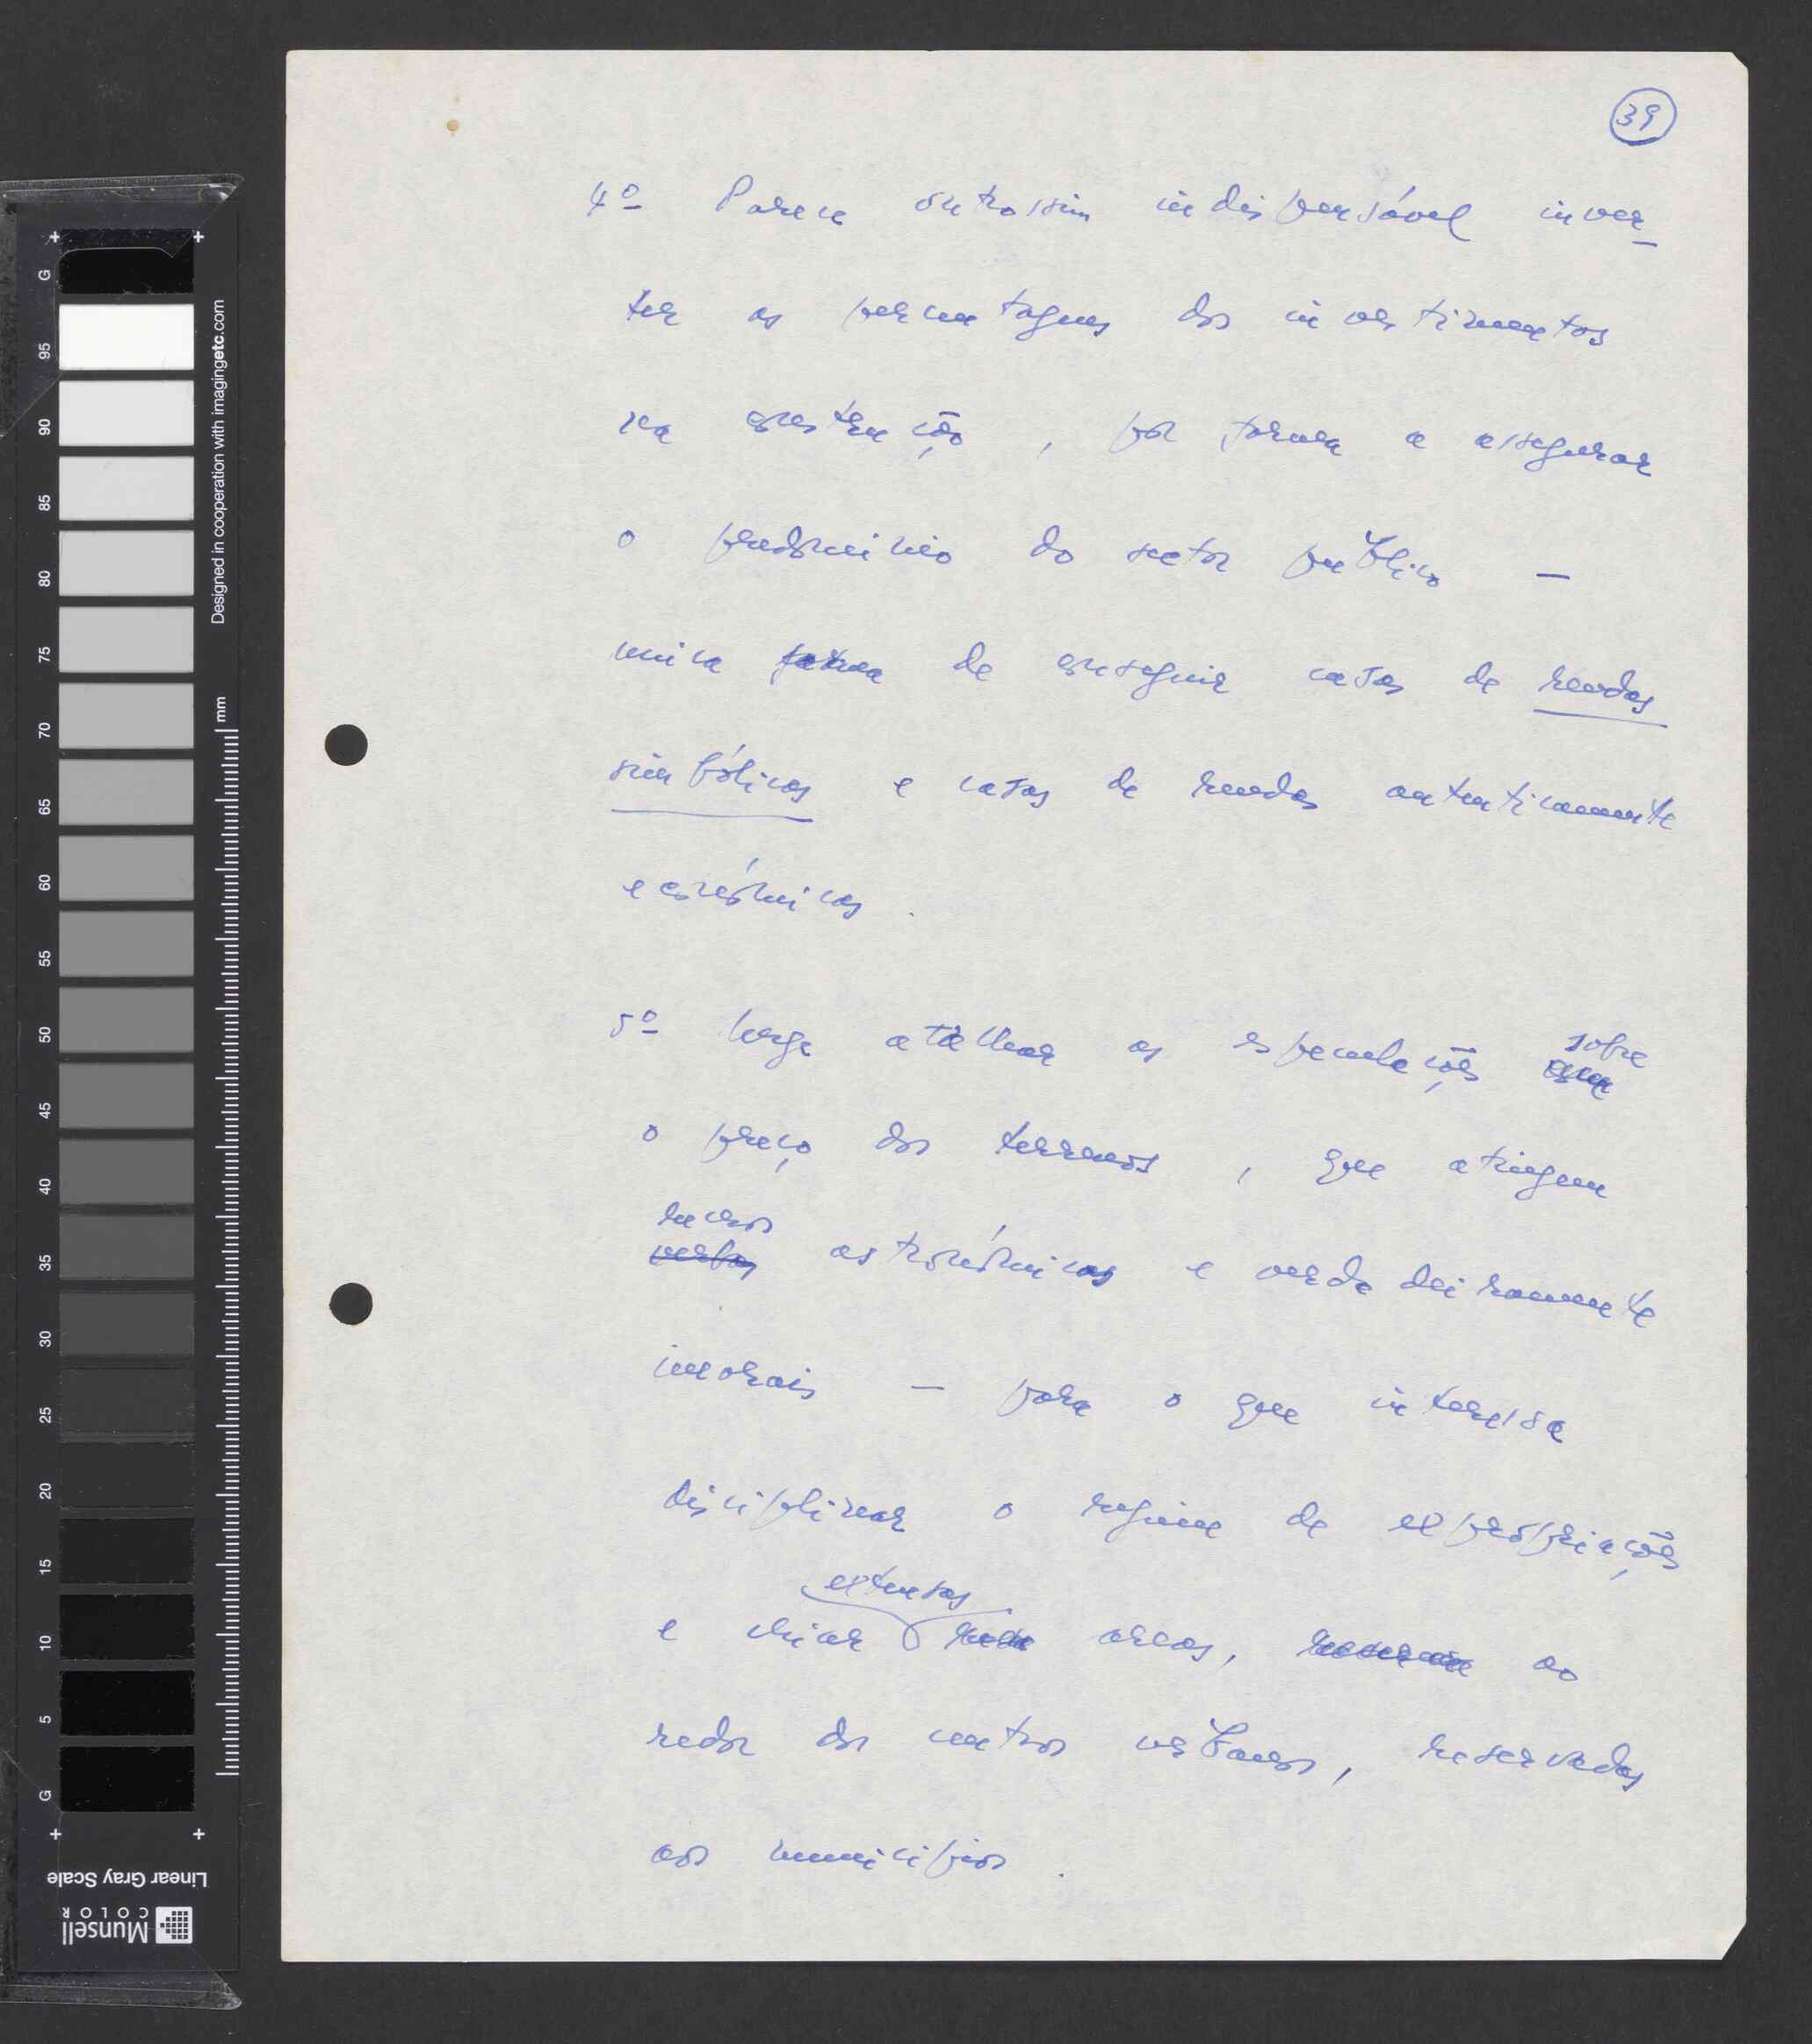 39
4º Parece outrossim indispensável inver-
ter as percentagens dos investimentos
na construção, por forma a assegurar
o predomínio do sector público —
unica forma de conseguir casas de rendas
simbólicas e casas de rendas autenticamente
económicas.
5º Urge atalhar as especulações sobre
o preço dos terrenos, que atingem
lucros
verbas astronómicas e verdadeiramente
imorais — para o que interessa
disciplinar o regime de expropriações
extensas
e criar areas, ao
redor dos centros urbanos, reservadas
aos municipios.
G
95
90
85
80
75
70
65
60
55
50
45
40
35
30
25
20
15
10
5
G
Designed in cooperation with imagingetc.com
mm
Linear Gray Scale
Munsell
COLOR